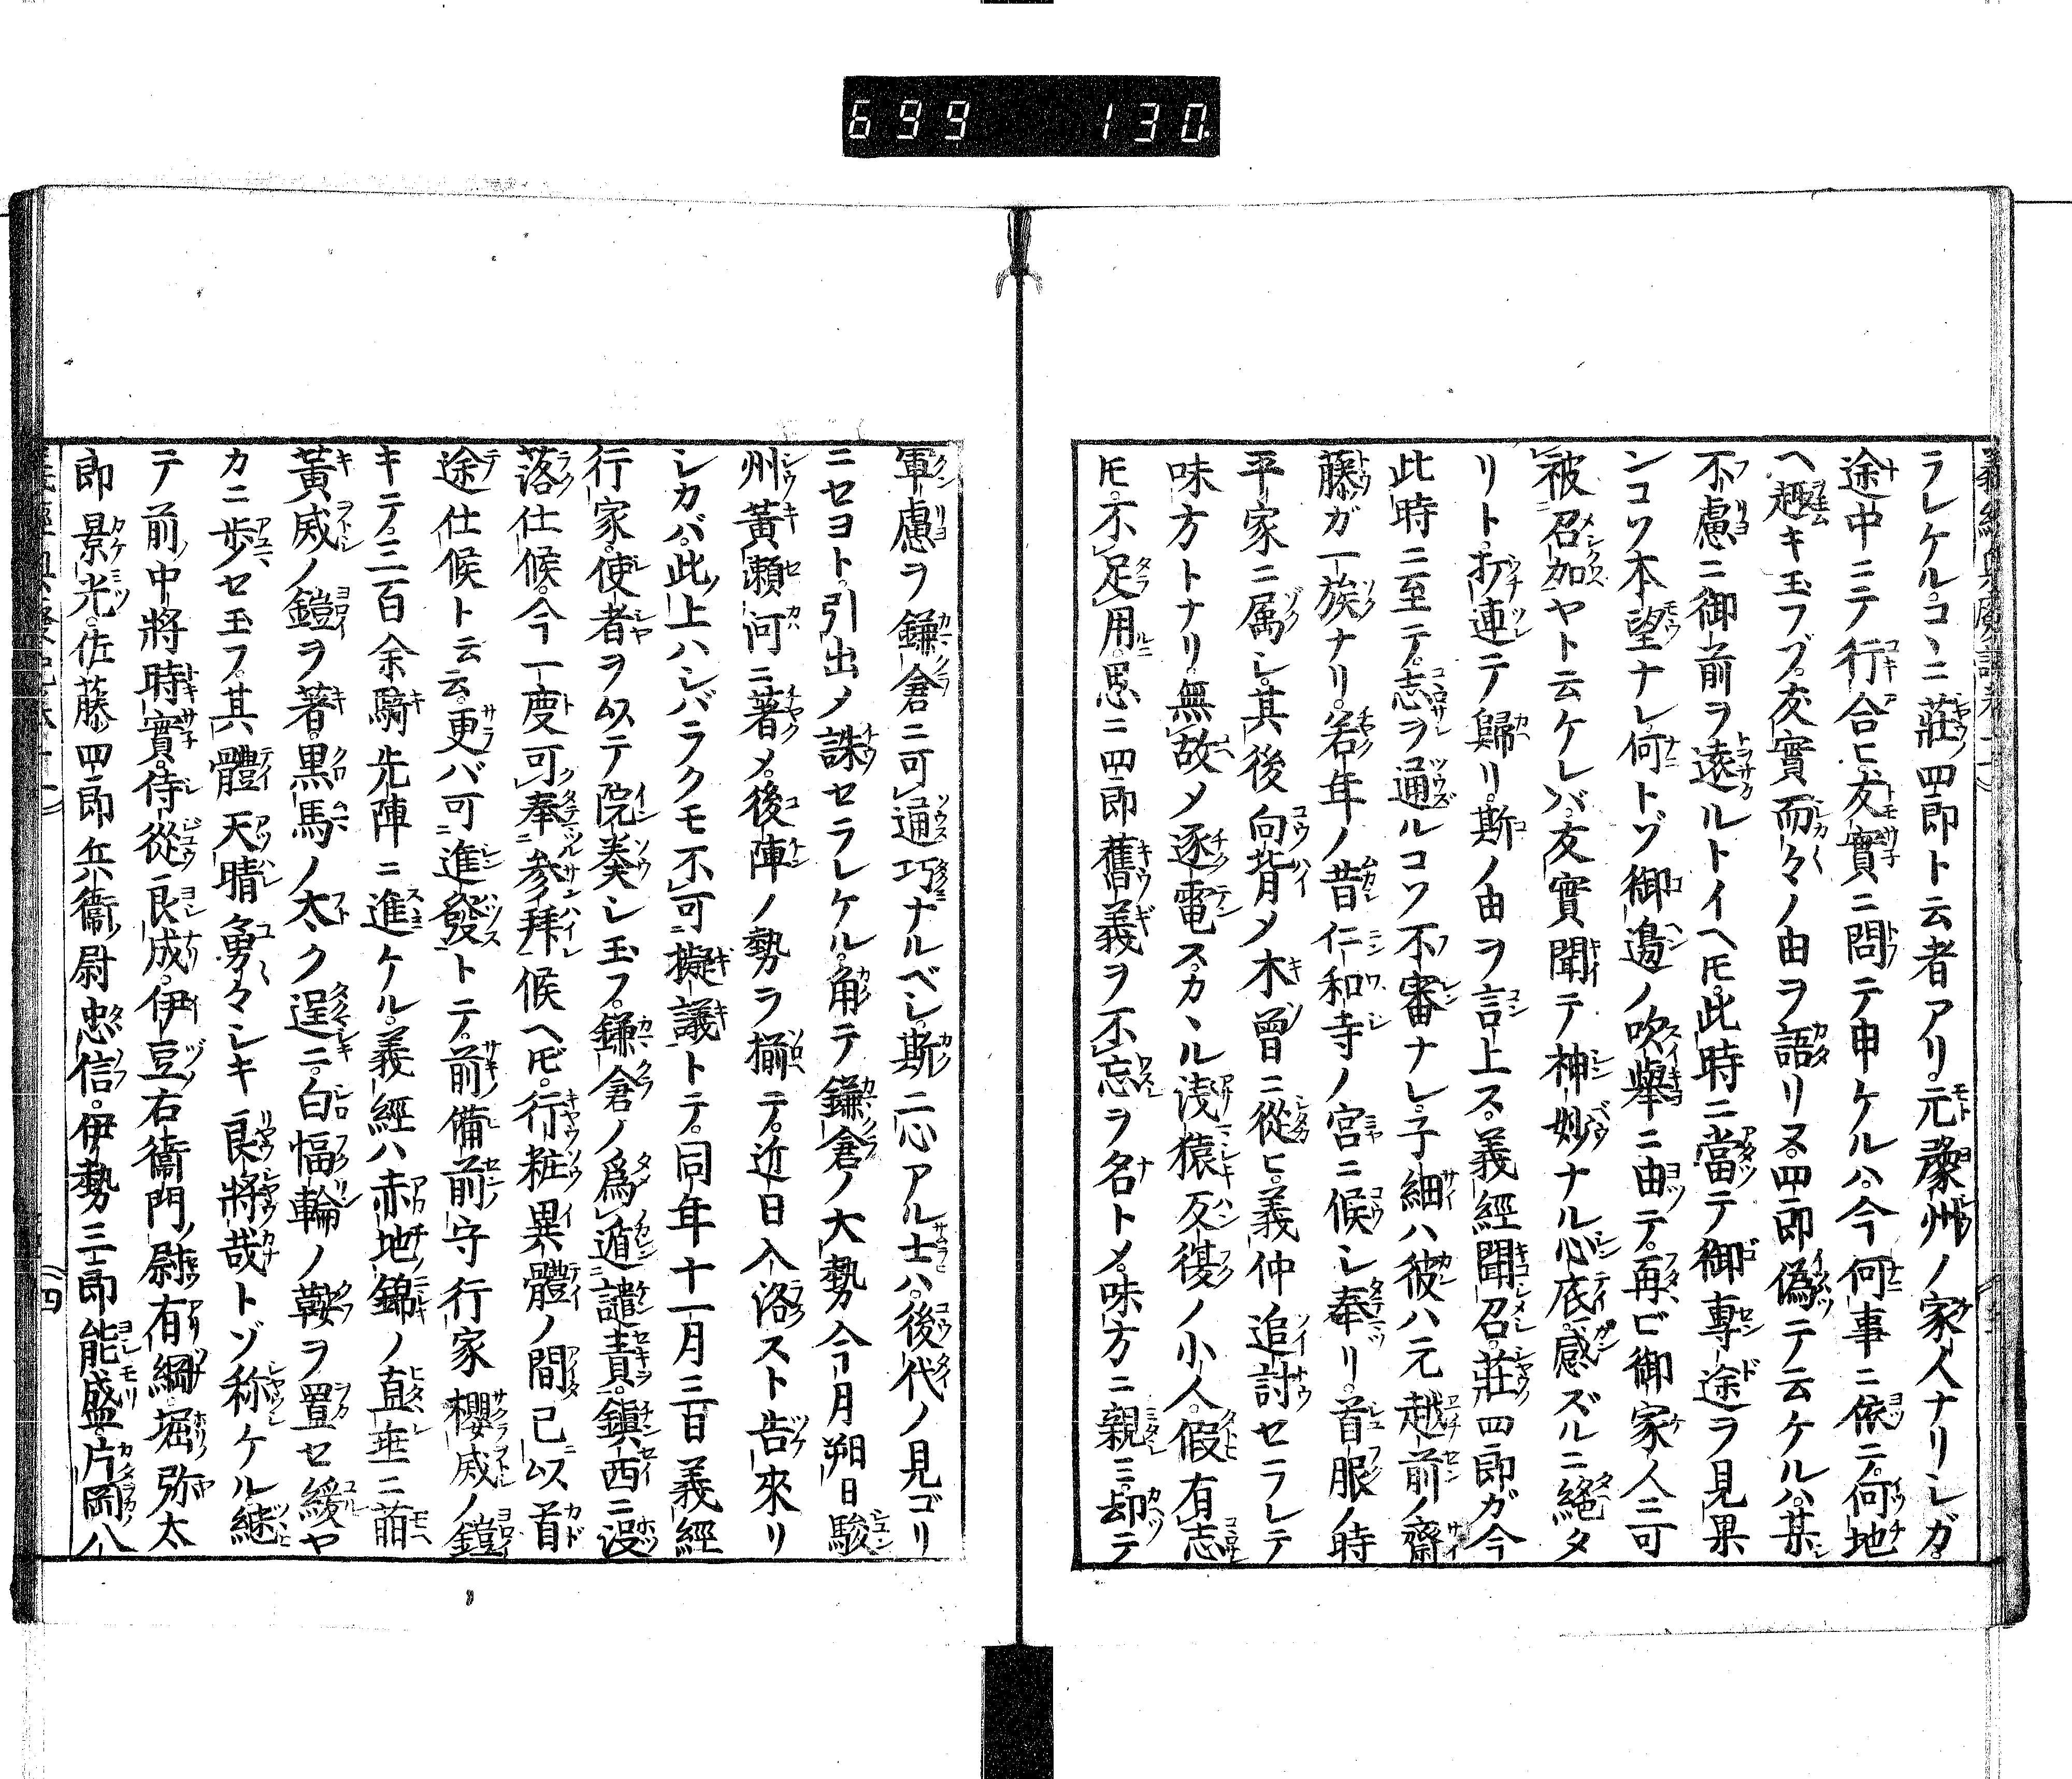 699 130.
ラレケル。コヽニ莊四郎ト云者アリ。元豫州ノ家人ナリシガ。
途中ニテ行合ヒ。友實ニ問テ申ケルハ。今何事ニ依テ。何地
ヘ趣キ玉フゾ。友實而々ノ由ヲ語リヌ。四郎偽テ云ケルハ。某
不慮ニ御前ヲ遠ルトイヘ𪜈。此時ニ當テ御專途ヲ見果
ンコソ本望ナレ何トゾ御邊ノ吹舉ニ由テ。再ビ御家人ニ可
被召加ヤト云ケレバ。友實聞テ神妙ナル心底。感ズルニ絶タ
リト。打連テ歸リ。斯ノ由ヲ言上ス。義經聞召。莊四郎ガ今
此時ニ至テ。志ヲ通ルコソ不審ナレ。子細ハ彼ハ元越前ノ齋
藤ガ一族ナリ。若年ノ昔仁和寺ノ宮ニ候シ奉リ。首服ノ時
平家ニ属シ。其後向背メ木曾ニ從ヒ。義仲追討セラレテ
味方トナリ。無故メ逐電ス。カヽル浅猿反復ノ小人。假有志
𪜈。不足用。思ニ四郎舊義ヲ不忘ヲ名トメ。味方ニ親ミ。却テ
軍慮ヲ鎌倉ニ可通巧ナルベシ。斯二心アル士ハ。後代ノ見ゴリ
ニセヨト。引出ノ誅セラレケル。角テ鎌倉ノ大勢今月朔日駿
州黃瀬河ニ著メ。後陣ノ勢ラ揃テ。近日入洛スト告來リ
シカバ。此上ハシバラクモ不可擬議トテ。同年十一月三日義經
行家。使者ヲ以テ院奏シ玉フ。鎌倉ノ爲遁譴責。鎭西ニ沒
落仕候。今一度可奉參拜候ヘ𪜈。行粧異體ノ間已以首
途仕候ト云云。更バ可進發トテ。前備前守行家櫻威ノ鎧
キテ。三百余騎先陣ニ進ケル。義經ハ赤地錦ノ直垂ニ萠
黃威ノ鎧ヲ著。黒馬ノ太ク逞ニ。白幅輪ノ鞍ヲ置セ緩ヤ
カニ歩セ玉フ。其體天晴勇々シキ良將哉トゾ称ケル。継
テ前中將時實。侍從良成。伊豆右衞門尉有綱。堀弥太
郎景光。佐藤四郎兵衞尉忠信。伊勢三郎能盛。片岡八
四